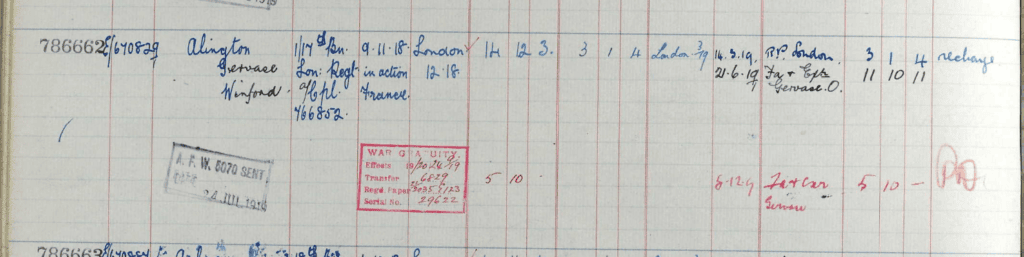 786662 E/670829 Alington 1/17th Bn. 9.11.18. London 14 12 3. 3 1 4 London 3/19 14.3.19. R.P. London. 3 1 4 recharge
Gervase Lon: Regt in action 12.18. 21.6.19 Fa & Exts 11 10 11
Winford. a/Cpl. France. Gervase. O.
766852.
A. F. W. 5070 SENT
DATE
24 JUL 1919
WAR GRATUITY.
Effects
Transfer 6829
Regd. Paper
Serial No. 29622
5 10 8.12.9 5 10 –
Gervase
786663